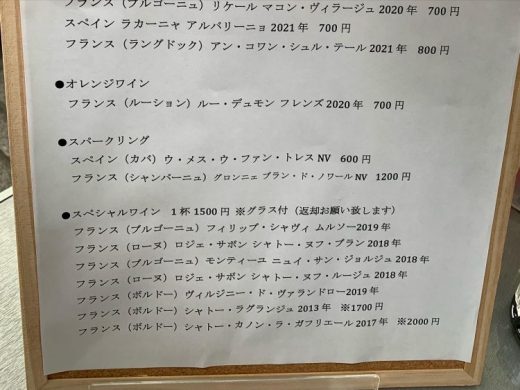 フランス（ブルゴーニュ）リケール マコン・ヴィラージュ 2020年 700円
スペイン ラカーニャ アルバリーニョ 2021年 700円
フランス（ラングドック）アン・コワン・シュル・テール 2021年 800円
●オレンジワイン
フランス（ルーション）ルー・デュモン フレンズ 2020年 700円
●スパークリング
スペイン（カバ）ウ・メス・ウ・ファン・トレス NV 600円
フランス（シャンパーニュ）グロンニェ ブラン・ド・ノワール NV 1200円
●スペシャルワイン 1杯 1500円 ※グラス付（返却お願い致します）
フランス（ブルゴーニュ）フィリップ・シャヴィ ムルソー 2019年
フランス（ローヌ）ロジェ・サボン シャトー・ヌフ・ブラン 2018年
フランス（ブルゴーニュ）モンティーユ ニュイ・サン・ジョルジュ 2018年
フランス（ローヌ）ロジェ・サボン シャトー・ヌフ・ルージュ 2018年
フランス（ボルドー）ヴィルジニー・ド・ヴァランドロー 2019年
フランス（ボルドー）シャトー・ラグランジュ 2013年 ※1700円
フランス（ボルドー）シャトー・カノン・ラ・ガフリエール 2017年 ※2000円